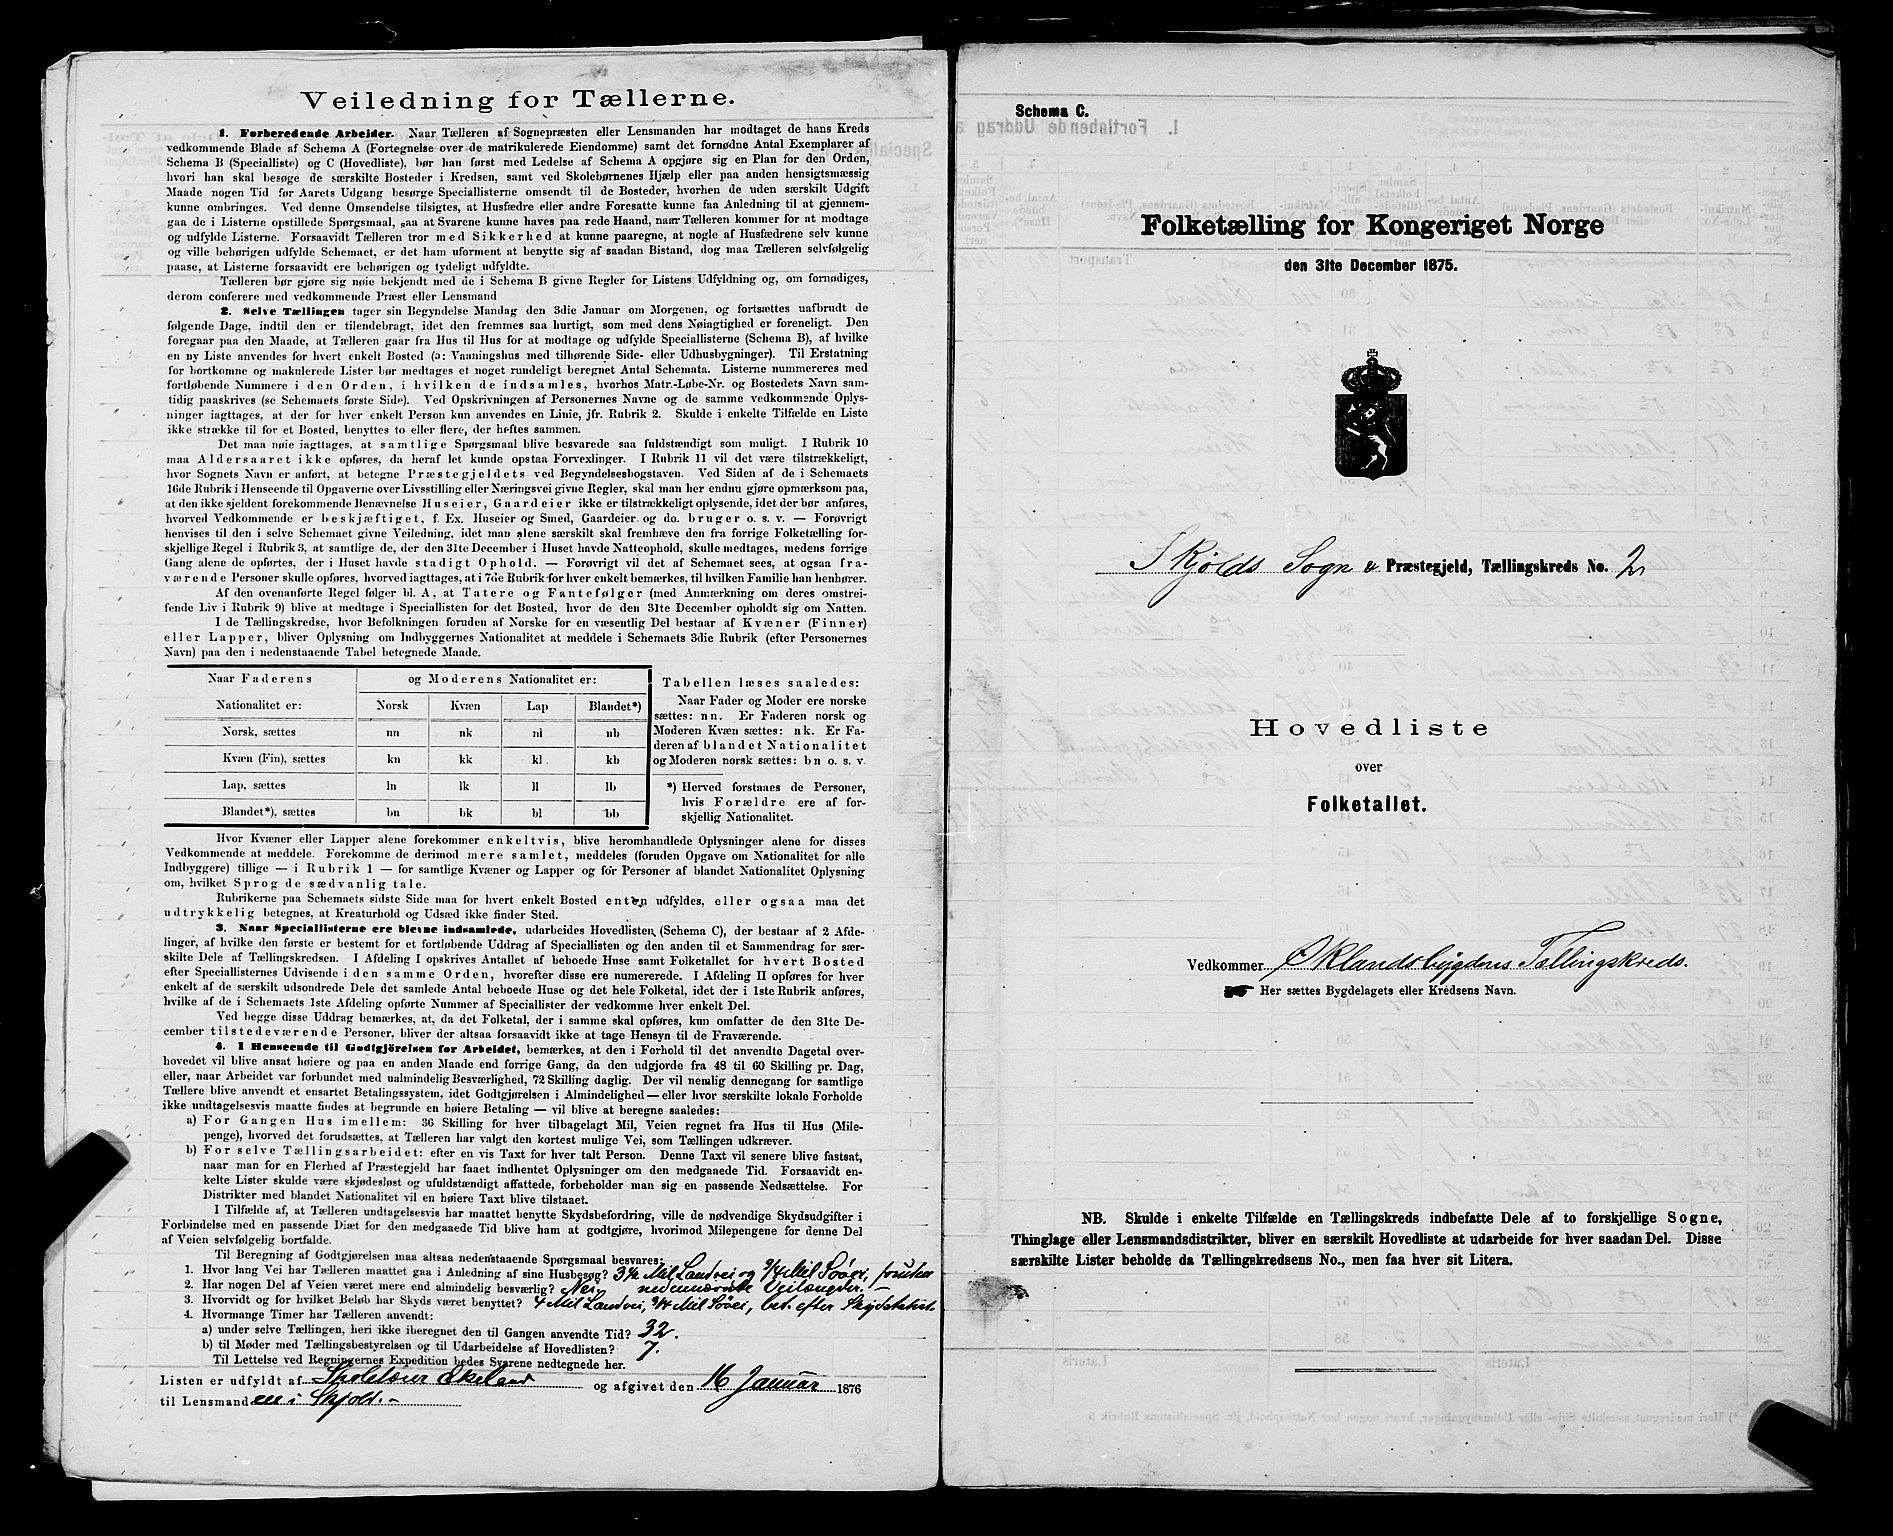 Veiledning for Tællerne.
1. Forberedende Arbeider. Naar Tælleren af Sognepræsten eller Lensmanden har modtaget de hans Kreds
vedkommende Blade af Schema A (Fortegnelse over de matrikulerede Eiendomme) samt det fornødne Antal Exemplarer af
Schema B (Specialliste) og C (Hovedliste), bør han først med Ledelse af Schema A opgjøre sig en Plan for den Orden,
hvori han skal besøge de særskilte Bosteder i Kredsen, samt ved Skolebørnenes Hjælp eller paa anden hensigtsmæssig
Maade nogen Tid før Aarets Udgang besørge Speciallisterne omsendt til de Bosteder, hvorhen de uden særskilt Udgift
kunne ombringes. Ved denne Omsendelse tilsigtes, at Husfædre eller andre Foresatte kunne faa Anledning til at gjennem-
gaa de i Listerne opstillede Spørgsmaal, saa at Svarene kunne haves paa rede Haand, naar Tælleren kommer for at modtage
og udfylde Listerne. Forsaavidt Tælleren tror med Sikkerhed at kunne paaregne, at nogle af Husfædrene selv kunne
og ville behørigen udfylde Schemaet, er det ham uforment at benytte sig af saadan Bistand, dog maa Tælleren selvfølgelig
paase, at Listerne forsaavidt ere behørigen og tydeligt udfyldte.
Tælleren bør gjøre sig nøie bekjendt med de i Schema B givne Regler for Listens Udfyldning og, om fornødiges,
derom conferere med vedkommende Præst eller Lensmand
2. Selve Tællingen tager sin Begyndelse Mandag den 3die Januar om Morgenen, og fortsættes uafbrudt de
følgende Dage, indtil den er tilendebragt, idet den fremmes saa hurtigt, som med dens Nøiagtighed er foreneligt. Den
foregaar paa den Maade, at Tælleren gaar fra Hus til Hus for at modtage og udfylde Speciallisterne (Schema B), af hvilke
en ny Liste anvendes for hvert enkelt Bosted (ɔ: Vaaningshus med tilhørende Side- eller Udhusbygninger). Til Erstatning
for bortkomne og makulerede Lister bør medtages et noget rundeligt beregnet Antal Schemata. Listerne nummereres med
fortløbende Nummere i den Orden, i hvilken de indsamles, hvorhos Matr.-Løbe-Nr. og Bostedets Navn sam-
tidig paaskrives (se Schemaets første Side). Ved Opskrivningen af Personernes Navne og de samme vedkommende Oplys-
ninger iagttages, at der for hver enkelt Person kun anvendes en Linie, jfr. Rubrik 2. Skulde i enkelte Tilfælde en Liste
ikke strække til for et Bosted, benyttes to eller flere, der heftes sammen.
Det maa nøie iagttages, at samtlige Spørgsmaal blive besvarede saa fuldstændigt som muligt. I Rubrik 10
maa Aldersaaret ikke opføres, da heraf let kunde opstaa Forvexlinger. I Rubrik 11 vil det være tilstrækkeligt,
hvor Sognets Navn er anført, at betegne Præstegjeldets ved Begyndelsesbogstaven. Ved Siden af de i Schemaets
16de Rubrik i Henseende til Opgaverne over Livsstilling eller Næringsvei givne Regler, skal man her endnu gjøre opmærksom paa,
at den ikke sjeldent forekommende Benævnelse Huseier, Gaardeier ikke er tilstrækkeligt oplysende, idet der bør anføres,
hvorved Vedkommende er beskjæftiget, f. Ex. Huseier og Smed, Gaardeier og do. bruger o. s. v. — Forøvrigt
henvises til den i selve Schemaet givne Veiledning, idet man alene særskilt skal fremhæve den fra forrige Folketælling for-
skjellige Regel i Rubrik 3, at samtlige de, der den 31te December i Huset havde Natteophold, skulle medtages, medens forrige
Gang alene de opførtes, der i Huset havde stadigt Ophold. — Forøvrigt vil det af Schemaet sees, at ogsaa fra-
værende Personer skulle opføres, hvorved iagttages, at i 7de Rubrik for hver enkelt bemærkes, til hvilken Familie han henhører.
Af den ovenanførte Regel følger bl. A, at Tatere og Fantefølger (med Anmærkning om deres omstrei-
fende Liv i Rubrik 9) blive at medtage i Speciallisten for det Bosted, hvor de den 31te December opholdt sig om Natten.
I de Tællingskredse, hvor Befolkningen foruden af Norske for en væsentlig Del bestaar af Kvæner (Finner)
eller Lapper, bliver Oplysning om Indbyggernes Nationalitet at meddele i Schemaets 3die Rubrik (efter Personernes
Navn) paa den i nedenstaaende Tabel betegnede Maade.
Naar Faderens | og Moderens Nationalitet er:
Nationalitet er: | Norsk | Kvæn | Lap | Blandet*)
Norsk, sættes | nn | nk | nl | nb
Kvæn (Fin), sættes | kn | kk | kl | kb
Lap, sættes | ln | lk | ll | lb
Blandet*), sættes | bn | bk | bl | bb
Tabellen læses saaledes:
Naar Fader og Moder ere norske
sættes: nn. Er Faderen norsk og
Moderen Kvæn sættes: nk. Er Fa-
deren af blandet Nationalitet
og Moderen norsk sættes: bn o. s. v.
*) Herved forstaaes de Personer,
hvis Forældre ere af for-
skjellig Nationalitet.
Hvor Kvæner eller Lapper alene forekommer enkeltvis, blive heromhandlede Oplysninger alene for disses
Vedkommende at meddele. Forekomme de derimod mere samlet, meddeles (foruden Opgave om Nationalitet for alle
Indbyggere) tillige — i Rubrik 1 — for samtlige Kvæner og Lapper og for Personer af blandet Nationalitet Oplysning
om, hvilket Sprog de sædvanlig tale.
Rubrikerne paa Schemaets sidste Side maa for hvert enkelt Bosted enten udfyldes, eller ogsaa maa det
udtrykkelig betegnes, at Kreaturhold og Udsæd ikke finder Sted.
3. Naar Speciallisterne ere blevne indsamlede, udarbeides Hovedlisten (Schema C), der bestaar af 2 Afde-
linger, af hvilke den første er bestemt for et fortløbende Uddrag af Speciallisten og den anden til et Sammendrag for sær-
skilte Dele af Tællingskredsen. I Afdeling I opskrives Antallet af beboede Huse samt Folketallet for hvert Bosted
efter Speciallisternes Udvisende i den samme Orden, hvorefter disse ere numererede. I Afdeling II opføres for hver
enkelt af de særskilt udsondrede Dele det samlede Antal beboede Huse og det hele Folketal, idet der i 1ste Rubrik anføres,
hvilke af de i Schemaets 1ste Afdeling opførte Nummer af Speciallister der vedkomme hver enkelt Del.
Ved begge disse Uddrag bemærkes, at, da det Folketal, der i samme skal opføres, kun omfatter de den 31te De-
cember tilstedeværende Personer, bliver der altsaa forsaavidt ikke at tage Hensyn til de Fraværende.
4. I Henseende til Godtgjörelsen for Arbeidet, bemærkes, at den i Forhold til det anvendte Dagetal over-
hovedet vil blive ansat høiere og paa en anden Maade end forrige Gang, da den udgjorde fra 48 til 60 Skilling pr. Dag,
eller, naar Arbeidet var forbundet med ualmindelig Besværlighed, 72 Skilling daglig. Der vil nemlig dennegang for samtlige
Tællere blive anvendt et ensartet Betalingssystem, idet Godtgjørelsen i Almindelighed — eller hvor særskilte lokale Forholde
ikke undtagelsesvis maatte findes at begrunde en høiere Betaling — vil blive at beregne saaledes:
a) For Gangen Hus imellem: 36 Skilling for hver tilbagelagt Mil, Veien regnet fra Hus til Hus (Mile-
penge), hvorved det forudsættes, at Tælleren har valgt den kortest mulige Vei, som Tællingen udkræver.
b) For selve Tællingsarbeidet: efter en vis Taxt for hver talt Person. Denne Taxt vil senere blive fastsat,
naar man for en Flerhed af Præstegjeld har faaet indhentet Oplysninger om den medgaaede Tid. Forsaavidt en-
kelte Lister skulde være skjødesløst og ufuldstændigt affattede, forbeholder man sig en passende Nedsættelse. For
Distrikter med blandet Nationalitet vil en høiere Taxt blive tilstaaet.
I Tilfælde af, at Tælleren undtagelsesvis har maattet benytte Skydsbefordring, ville de nødvendige Skydsudgifter i
Forbindelse med en passende Diæt for den medgaaede Tid blive ham at godtgjøre, hvorimod Milepengene for denne Del
af Veien selvfølgelig bortfalde.
Til Beregning af Godtgjørelsen maa altsaa nedenstaaende Spørgsmaal besvares:
1. Hvor lang Vei har Tælleren maattet gaa i Anledning af sine Husbesøg? 3½ Mil Landvei og ¾ Mil Søvei, foruden
2. Har nogen Del af Veien været mere end almindelig besværlig? Nei. nedennævnte Veilængder. —
3. Hvorvidt og for hvilket Beløb har Skyds været benyttet? 4 Mil Landvei, ¾ Mil Søvei, bet. efter Skydstaxt.
4. Hvormange Timer har Tælleren anvendt:
a) under selve Tællingen, heri ikke iberegnet den til Gangen anvendte Tid? 32.
b) til Møder med Tællingsbestyrelsen og til Udarbeidelse af Hovedlisten? 7.
Til Lettelse ved Regningernes Expedition bedes Svarene nedtegnede her.
Listen er udfyldt af Skolelærer Ekeland og afgivet den 16 Januar 1876
til Lensmanden i Skjold. –
Schema C.
Folketælling for Kongeriget Norge
den 31te December 1875.
Skjolds Sogn & Præstegjeld, Tællingskreds No. 2
Hovedliste
over
Folketallet.
Vedkommer Øklandsbygdens Tællingskreds.
Her sættes Bygdelagets eller Kredsens Navn.
NB. Skulde i enkelte Tilfælde en Tællingskreds indbefatte Dele af to forskjellige Sogne,
Thinglage eller Lensmandsdistrikter, bliver en særskilt Hovedliste at udarbeide for hver saadan Del. Disse
særskilte Lister beholde da Tællingskredsens No., men faa hver sit Litera.